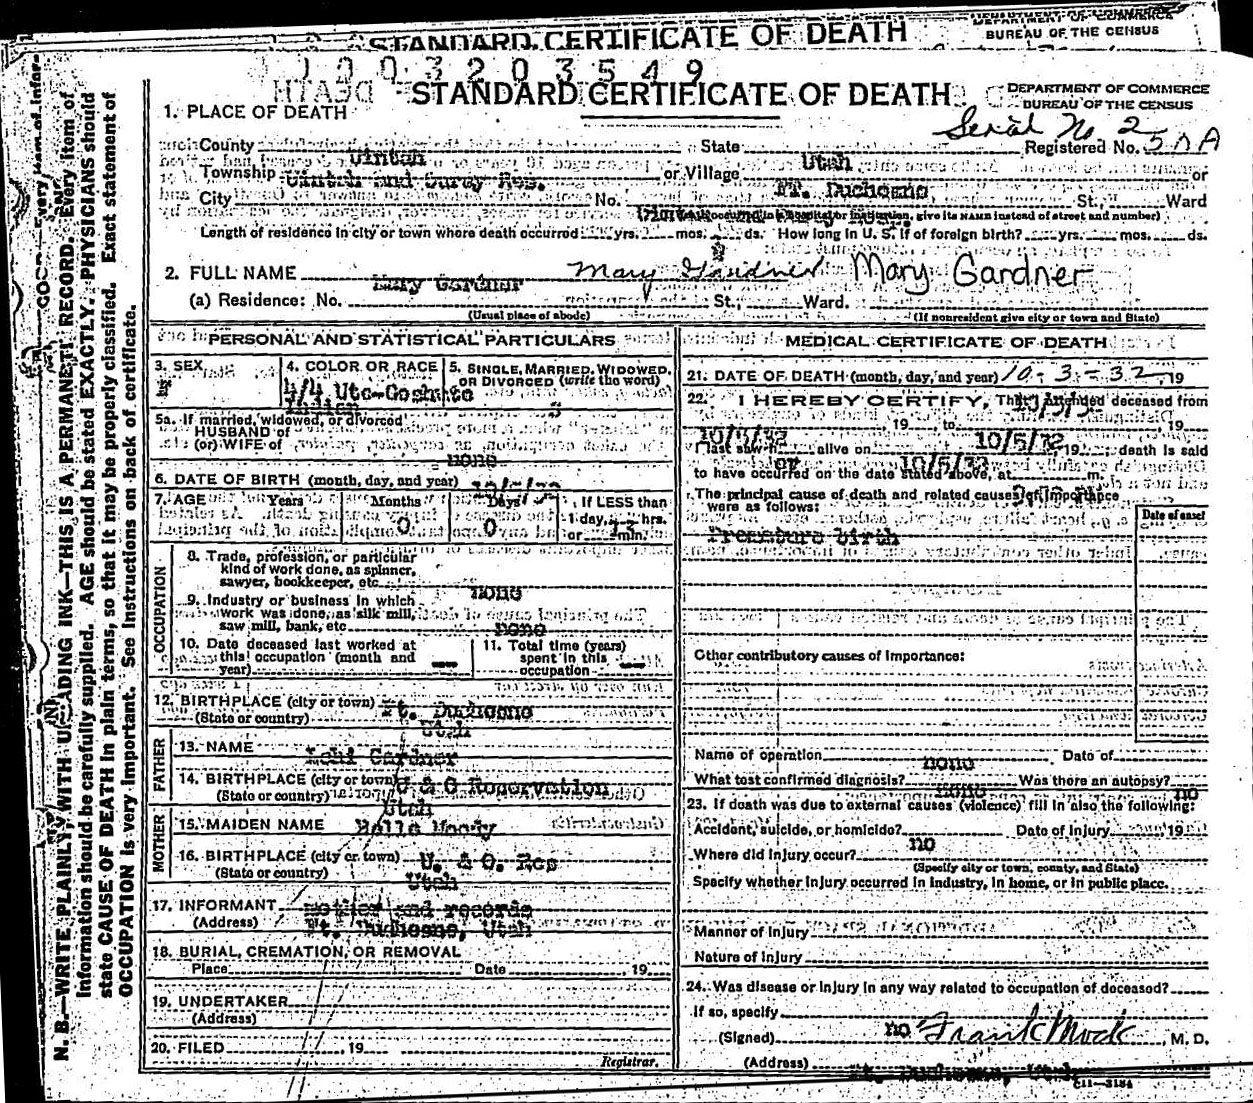 STANDARD CERTIFICATE OF DEATH
BUREAU OF THE CENSUS
1003203549
STANDARD CERTIFICATE OF DEATH
DEPARTMENT OF COMMERCE
BUREAU OF THE CENSUS
1. PLACE OF DEATH
Serial No. 2
County Uintah State Utah Registered No.
Township Uintah and Ouray Res. or Village Ft. Duchesne or
City No. St., Ward
(If death occurred in a hospital or institution, give its NAME instead of street and number)
Length of residence in city or town where death occurred yrs. mos. ds. How long in U. S. if of foreign birth? yrs. mos. ds.
2. FULL NAME Mary Gardner Mary Gardner Mary Gardner
(a) Residence: No. St., Ward.
(Usual place of abode) (If nonresident give city or town and State)
PERSONAL AND STATISTICAL PARTICULARS
3. SEX 4. COLOR OR RACE 4/4 Ute-Goshute Indian 5. SINGLE, MARRIED, WIDOWED, OR DIVORCED (write the word) S
5a. If married, widowed, or divorced
HUSBAND of
(or) WIFE of none
6. DATE OF BIRTH (month, day, and year)
7. AGE Years Months Days If LESS than
0 0 1 day, hrs.
or min.
OCCUPATION
8. Trade, profession, or particular
kind of work done, as spinner,
sawyer, bookkeeper, etc. none
9. Industry or business in which
work was done, as silk mill,
saw mill, bank, etc. none
10. Date deceased last worked at
this occupation (month and
year)
11. Total time (years)
spent in this
occupation
12. BIRTHPLACE (city or town) Ft. Duchesne
(State or country) Utah
FATHER
13. NAME Lehi Gardner
14. BIRTHPLACE (city or town) U & O Reservation
(State or country) Utah
MOTHER
15. MAIDEN NAME
16. BIRTHPLACE (city or town) U. & O. Res
(State or country) Utah
17. INFORMANT mother and records
(Address) Ft. Duchesne, Utah
18. BURIAL, CREMATION, OR REMOVAL
Place Date , 19
19. UNDERTAKER
(Address)
20. FILED , 19
Registrar.
MEDICAL CERTIFICATE OF DEATH
21. DATE OF DEATH (month, day, and year) 10-3-32, 19
22. I HEREBY CERTIFY, That I attended deceased from
, 19 to , 19
I last saw h alive on , 19 death is said
to have occurred on the date stated above, at m.
The principal cause of death and related causes of importance
were as follows: Date of onset
Premature birth
Other contributory causes of importance:
Name of operation none Date of
What test confirmed diagnosis? none Was there an autopsy? no
23. If death was due to external causes (violence) fill in also the following:
Accident, suicide, or homicide? no Date of injury 19
Where did injury occur?
(Specify city or town, county, and State)
Specify whether injury occurred in industry, in home, or in public place.
Manner of injury
Nature of injury
24. Was disease or injury in any way related to occupation of deceased?
If so, specify no
(Signed) Frank Mock, M. D.
(Address) Ft. Duchesne, Utah
C11—3184
N. B.—WRITE PLAINLY, WITH UNFADING INK—THIS IS A PERMANENT RECORD. Every item of
information should be carefully supplied. AGE should be stated EXACTLY. PHYSICIANS should
state CAUSE OF DEATH in plain terms, so that it may be properly classified. Exact statement of
OCCUPATION is very important. See instructions on back of certificate.